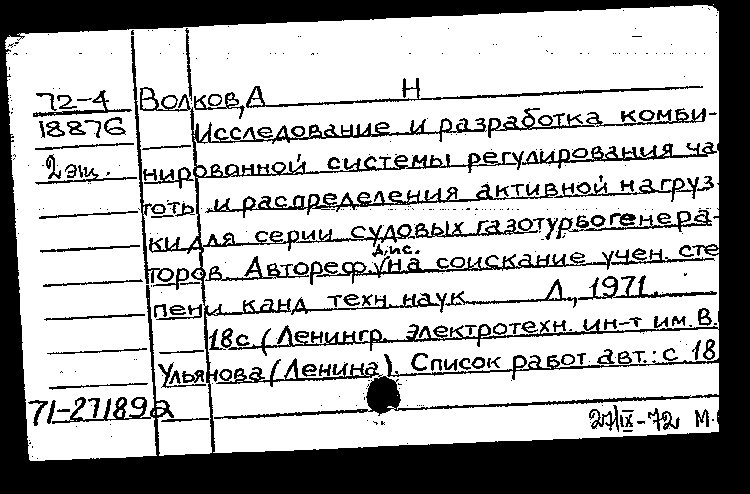 72-4 Волков, А Н
18876 Исследование и разработка комби-
2 экз. нированной системы регулирования ча
тоты и распределения активной нагруз
ки для серии судовых газотурбогенера-
торов. Автореф. дис. на соискание учен. сте
пени канд техн. наук Л., 1971.
18с. (Ленингр. электротехн. ин-т им. В.
Ульянова (Ленина). Список работ авт.: с 18
71-27189а
27/IX-72 М.